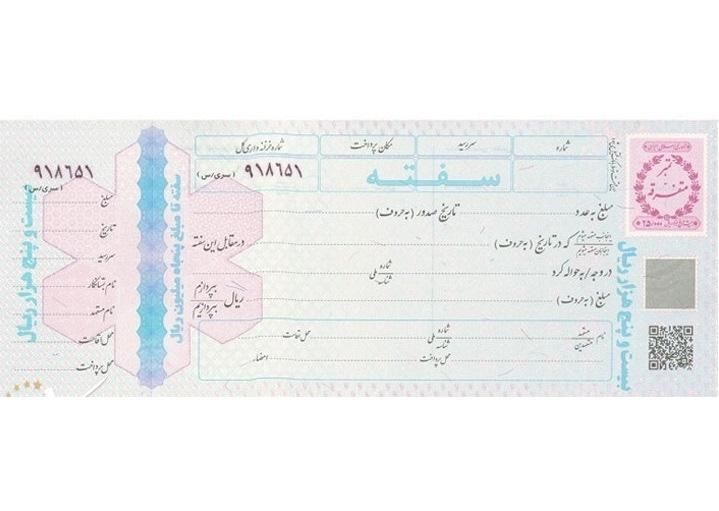 شماره سررسید مکان پرداخت شماره خزانه داری کل
سفته
۹۱۸۶۵۱
(سری/س)
مبلغ به عدد تاریخ صدور (به حروف)
که در تاریخ (به حروف) در مقابل این سفته
در وجه / به حواله کرد شماره ملی شناسه
مبلغ (به حروف) ریال بپردازم بپردازیم
نام متعهد متعهدین شماره ملی شناسه محل اقامت
محل پرداخت امضاء
تمبر
متفرقه
۲۵/۰۰۰
بیست و پنج هزار ریال
سفته تا مبلغ پنجاه میلیون ریال
۹۱۸۶۵۱
(سری/س)
مبلغ
تاریخ
سررسید
نام بستانکار
نام متعهد
محل اقامت
محل پرداخت
بیست و پنج هزار ریال